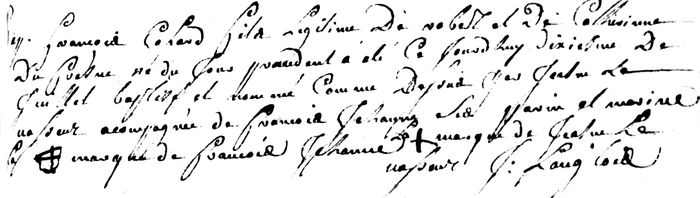 francois Colard fils legitime de robert et de Catherinne
Du fresne né du jour precedent a été ce jourdhuy dixiesme de
Juillet baptisé et nommé comme dessus par Jeanne Le
vasseur acompagnée de francois Jehanne ses parin et marine
marque de francois Jehanne marque de Jeanne Le
vasseur J: Langlois